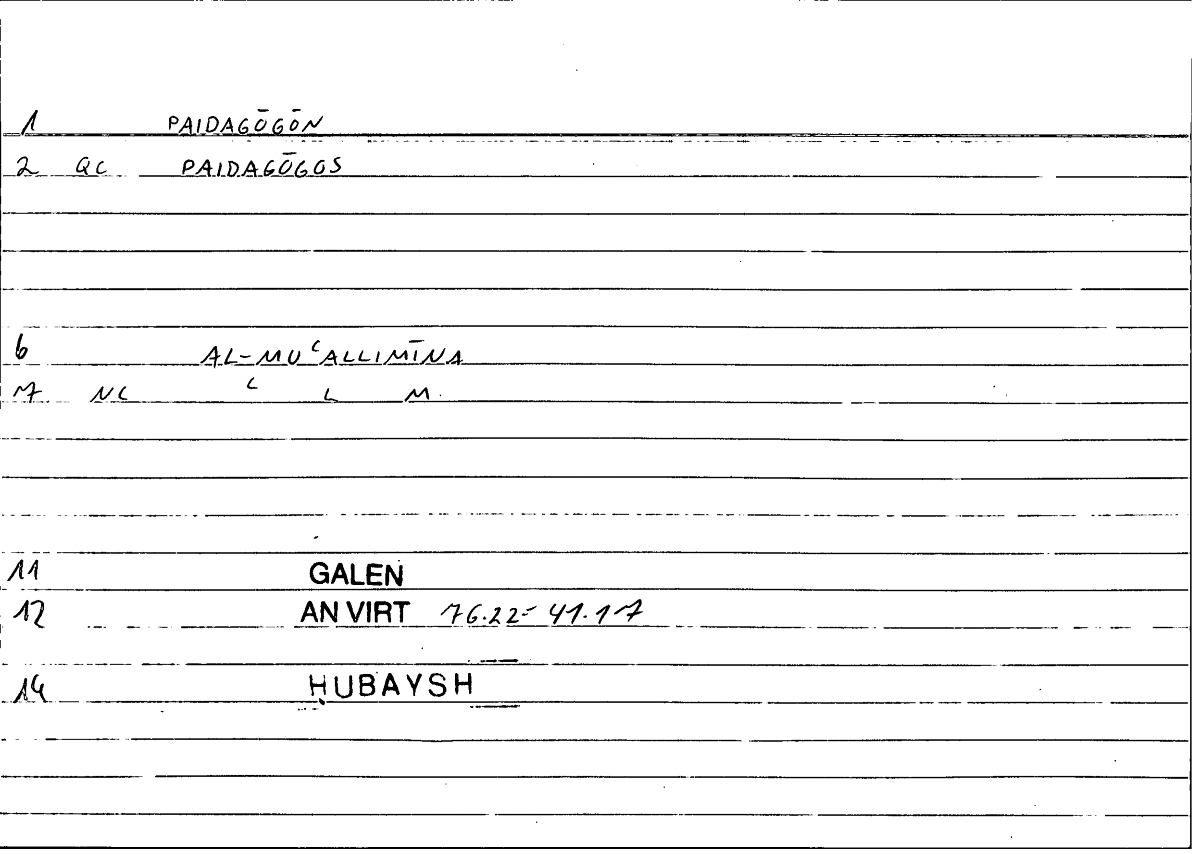 1 PAIDAGŌGŌN
2 QC PAIDAGŌGOS
6 AL-MUʿALLIMĪNA
7 NC ʿ L M
11 GALEN
12 AN VIRT 76.22 = 41.17
14 ḤUBAYSH